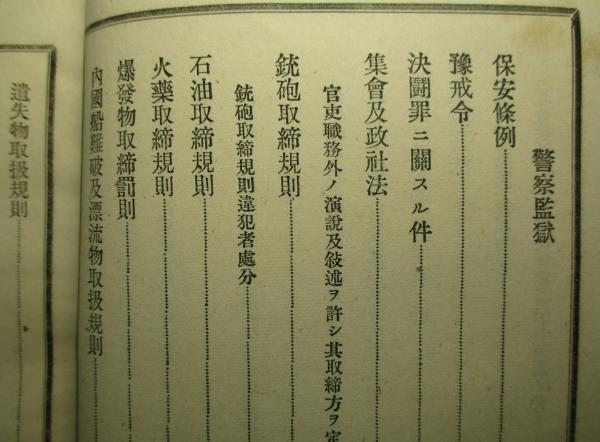 警察監獄
保安條例
豫戒令
決鬪罪ニ關スル件
集會及政社法
官吏職務外ノ演說及敍述ヲ許シ其取締方ヲ定
銃砲取締規則
銃砲取締規則違犯者處分
石油取締規則
火藥取締規則
爆發物取締罰則
內國船難破及漂流物取扱規則
遺失物取扱規則